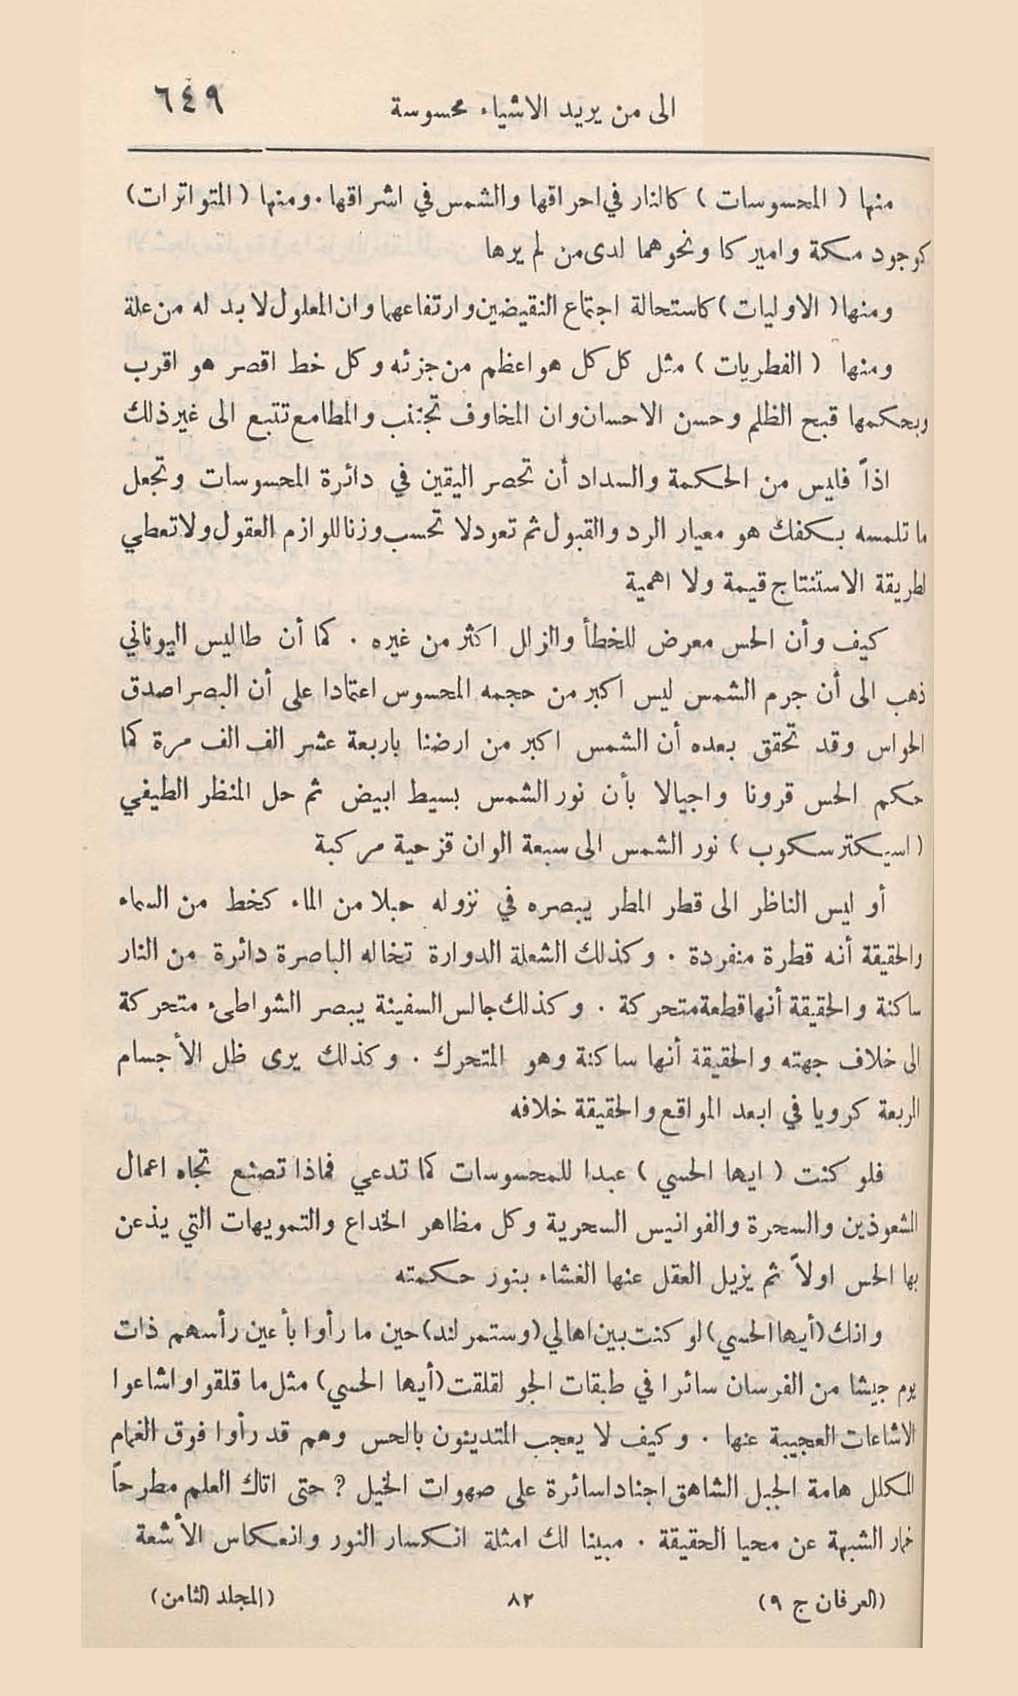 الى من يريد الاشياء محسوسة ٦٤٩
منها ( المحسوسات ) كالنار في احراقها والشمس في اشراقها . ومنها ( المتواترات )
كوجود مكة واميركا ونحوهما لدى من لم يرها
ومنها ( الاوليات ) كاستحالة اجتماع النقيضين وارتفاعهما وان المعلول لا بد له من علة
ومنها ( الفطريات ) مثل كل كل هو اعظم من جزئه وكل خط اقصر هو اقرب
وبحكمها قبح الظلم وحسن الاحسان وان المخاوف تجتنب والمطامع تتبع الى غير ذلك
اذاً فليس من الحكمة والسداد أن تحصر اليقين في دائرة المحسوسات وتجعل
ما تلمسه بكفك هو معيار الرد والقبول ثم تعود لا تحسب وزنا للوازم العقول ولا تعطي
لطريقة الاستنتاج قيمة ولا اهمية
كيف وأن الحس معرض للخطأ والزلل اكثر من غيره . كما أن طاليس اليوناني
ذهب الى أن جرم الشمس ليس اكبر من حجمه المحسوس اعتمادا على أن البصر اصدق
الحواس وقد تحقق بعده أن الشمس اكبر من ارضنا باربعة عشر الف الف مرة كما
حكم الحس قرونا واجيالا بأن نور الشمس بسيط ابيض ثم حل المنظر الطيفي
( اسيكترسكوب ) نور الشمس الى سبعة الوان قزحية مركبة
أو ليس الناظر الى قطر المطر يبصره في نزوله حبلا من الماء كخط من السماء
والحقيقة أنه قطرة منفردة . وكذلك الشعلة الدوارة تخاله الباصرة دائرة من النار
ساكنة والحقيقة أنها قطعة متحركة . وكذلك جالس السفينة يبصر الشواطىء متحركة
الى خلاف جهته والحقيقة أنها ساكنة وهو المتحرك . وكذلك يرى ظل الأجسام
المربعة كرويا في ابعد المواقع والحقيقة خلافه
فلو كنت ( ايها الحسي ) عبدا للمحسوسات كما تدعي فماذا تصنع تجاه اعمال
المشعوذين والسحرة والفوانيس السحرية وكل مظاهر الخداع والتمويهات التي يذعن
بها الحس اولاً ثم يزيل العقل عنها الغشاء بنور حكمته
وانك (أيها الحسي) لو كنت بين اهالي (وستمرلند) حين ما رأوا بأعين رأسهم ذات
يوم جيشا من الفرسان سائرا في طبقات الجو لقلقت (أيها الحسي) مثل ما قلقوا واشاعوا
الاشاعات العجيبة عنها . وكيف لا يعجب المتدينون بالحس وهم قد رأوا فوق الغمام
المكلل هامة الجبل الشاهق اجنادا سائرة على صهوات الخيل ? حتى اتاك العلم مطرحاً
خمار الشبهة عن محيا الحقيقة . مبينا لك امثلة انكسار النور وانعكاس الأشعة
(العرفان ج ٩) ٨٢ (المجلد الثامن)